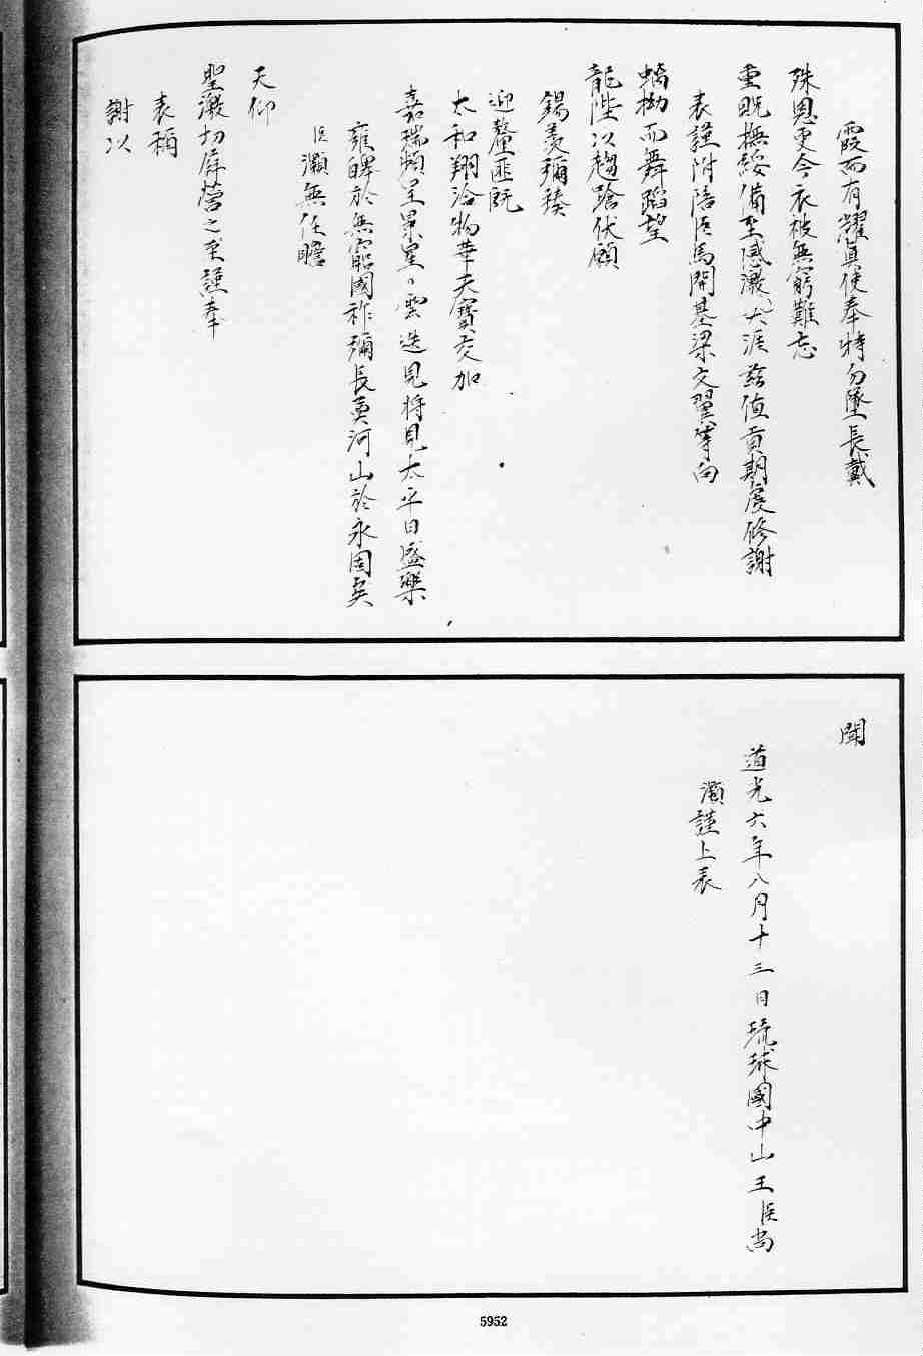 霞而有耀眞使奉特勿墜長戴
殊恩更令衣被無窮難忘
重貺撫綏備至感激天涯茲值貢期虔修謝
表謹附陪臣馬開基梁文翼等向
螭坳而舞蹈望
龍陛以趨蹌伏願
錫羨彌臻
迎釐匪旣
太和翔洽物華天寶交加
嘉瑞頻呈景星〻雲迭見將見太平日盛樂
雍皞於無窮國祚彌長奠河山於永固矣
臣灝無任瞻
天仰
聖激切屏營之至謹奉
表稱
謝以
聞
道光六年八月十三日琉球國中山王臣尚
灝謹上表
5952